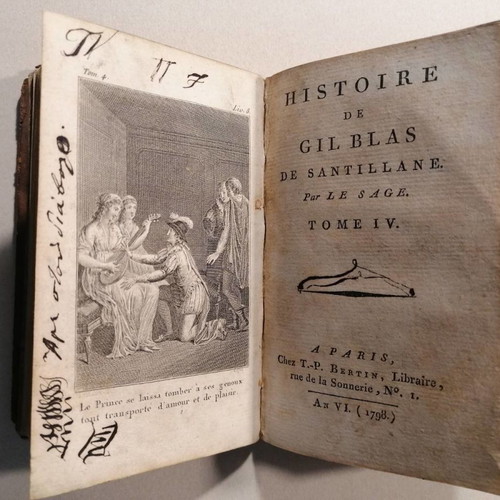 IV II 7
Tom. 4.
Liv. 8.
Le Prince se laissa tomber à ses genoux
tout transporte d'amour et de plaisir.
HISTOIRE
DE
GIL BLAS
DE SANTILLANE.
Par LE SAGE.
TOME IV.
A PARIS,
Chez T.-P. BERTIN, Libraire,
rue de la Sonnerie, N°. 1.
AN VI. (1798.)